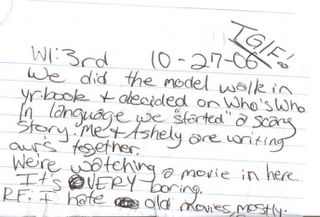 TGIF!
W1:3rd 10-27-06
We did the model walk in
yrbook + decided on Who's Who
In language we "started" a scary
story. Me + Ashely are writing
ours together.
We're watching a movie in here.
It's VERY boring.
RF: I hate old movies mostly.